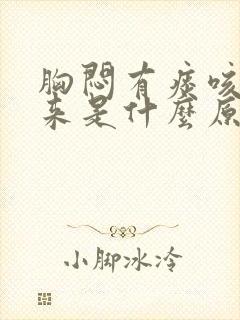 胸悶有痰咳
来是什麼原
小脚冰冷